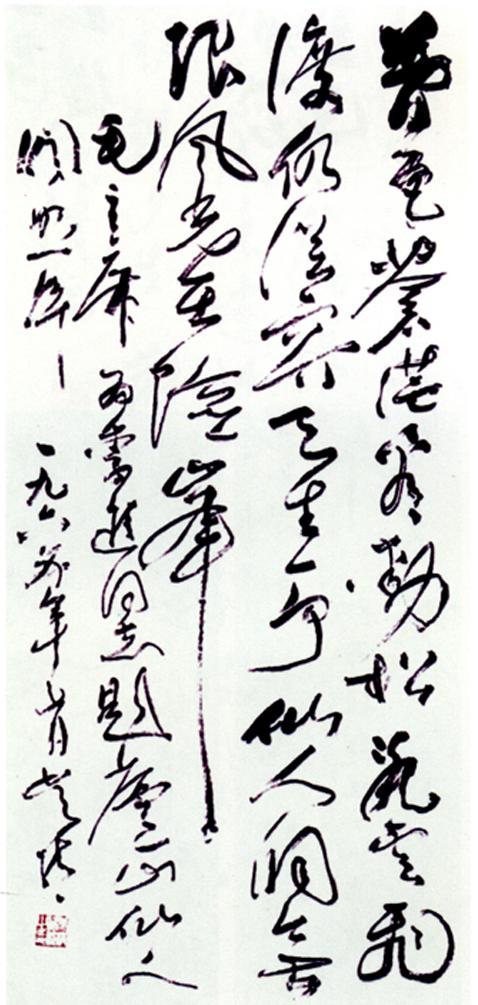 暮色蒼茫看勁松亂雲飛
渡仍從容天生一个仙人洞無
限風光在險峰
毛主席為李進同志題廬山仙人
洞照一首 一九六 年 月